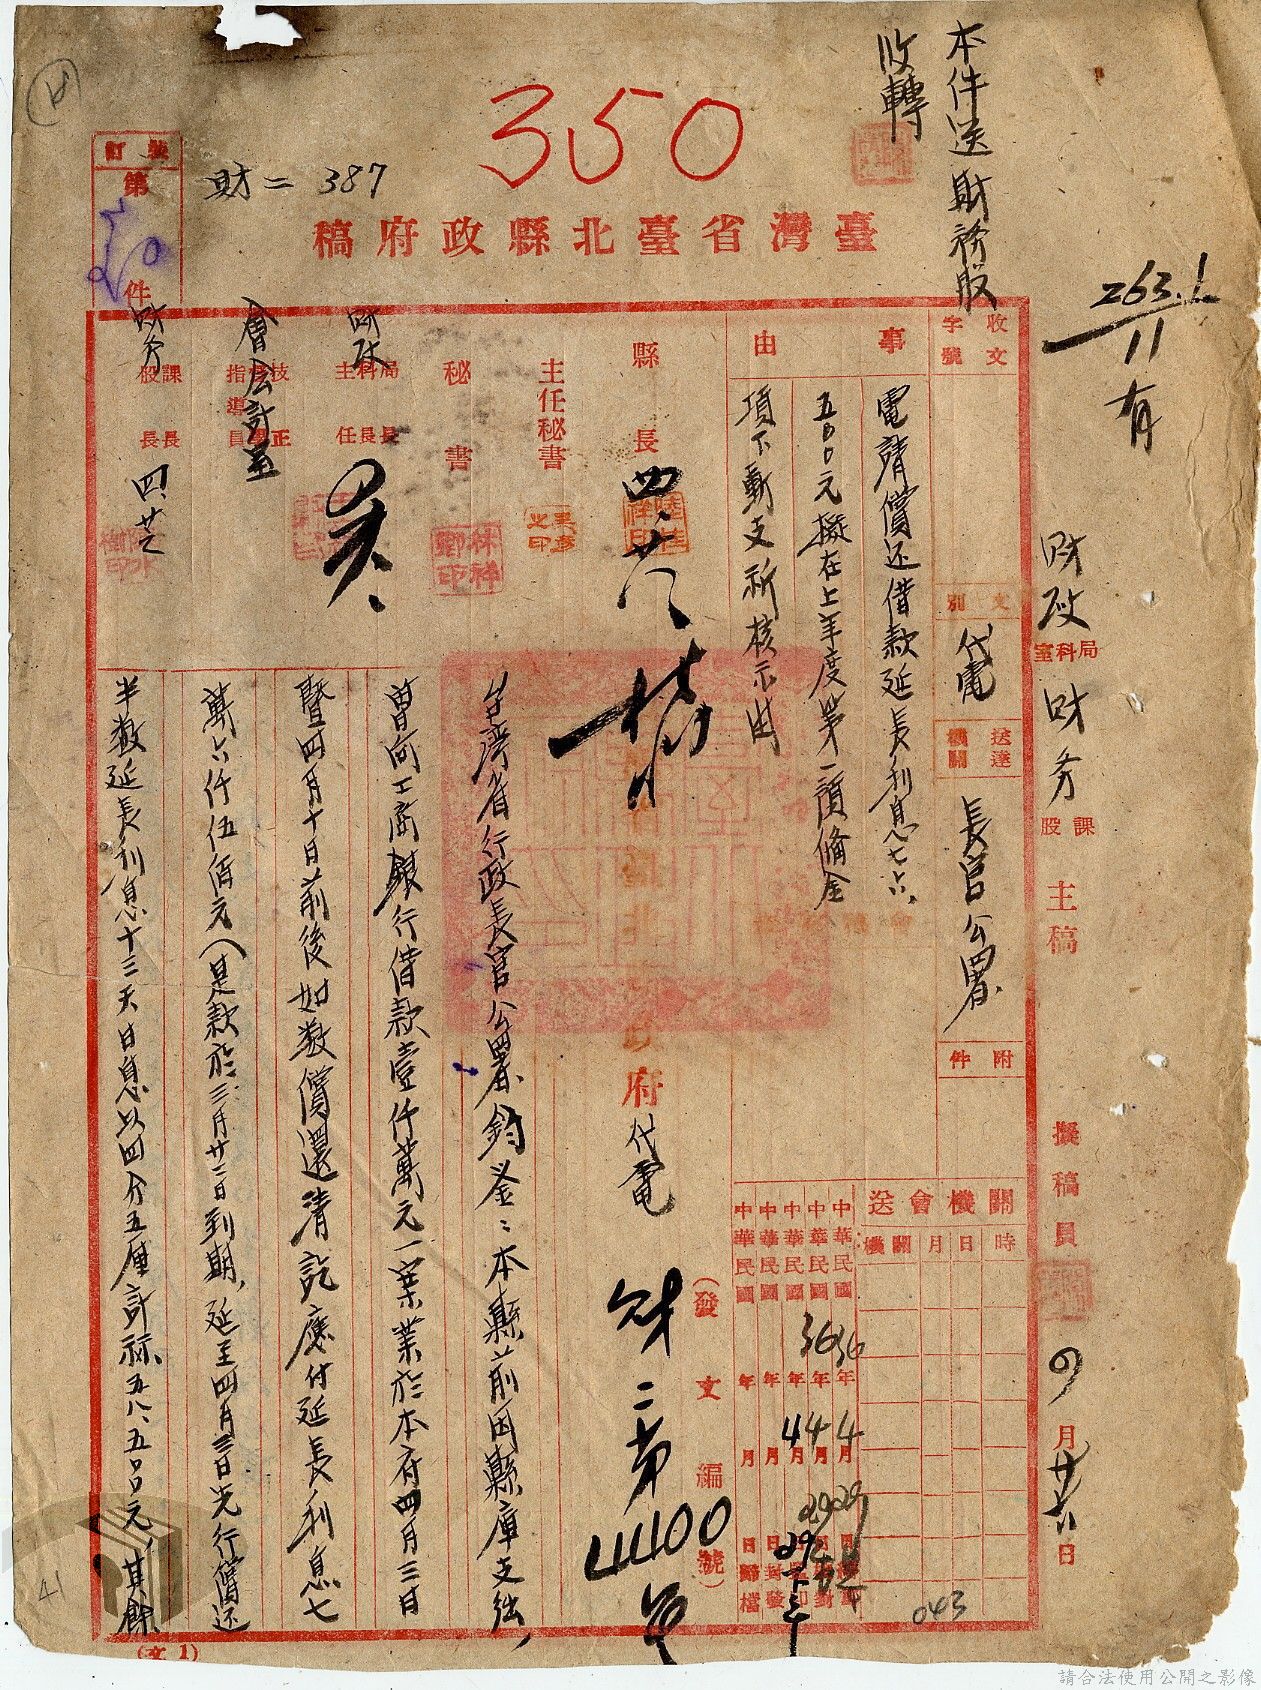 本件送財務股
收轉
350
財二 387
裝訂
第
50
件
臺灣省臺北縣政府稿
263.1
11
有
財政
局科室
財务
課股
主稿
擬稿員
四月廿六日
收文
字號
文別
代電
送達機關
長官公署
附件
事由
電請償还借款延長利息七六、
五00元擬在上年度第一預備金
項下動支祈核示由
縣長
四、廿八
主任秘書
秘書
林祥卿印
財政
局科主
長長任
會会計室
技技指導員
正
財务
課股
長長
四、廿六
關機會送
時日月關機
中華民國36年4月29日
中華民國36年4月29日
中華民國 年4月29日
中華民國 年 月 日封發
中華民國 年 月 日歸檔
043
府
代電
(發文編號)
財二第
44100
號
台湾省行政長官公署鈞鉴:本縣前因縣庫支絀,
曾向工商銀行借款壹仟萬元一案業於本府四月三日
暨四月十日前後如数償還清訖應付延長利息七
萬六仟伍佰元(是款於三月廿二日到期,延至四月三日先行償还
半数延長利息十三天日息以四分五厘計祘五八、五00元,其餘
(文1)
41
請合法使用公開之影像